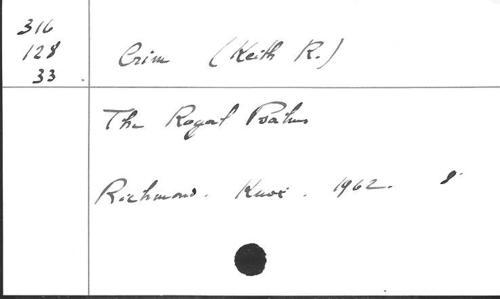 316
128
33
Crim (Keith R.)
The Royal Psalms
Richmond. Knox. 1962. 8°